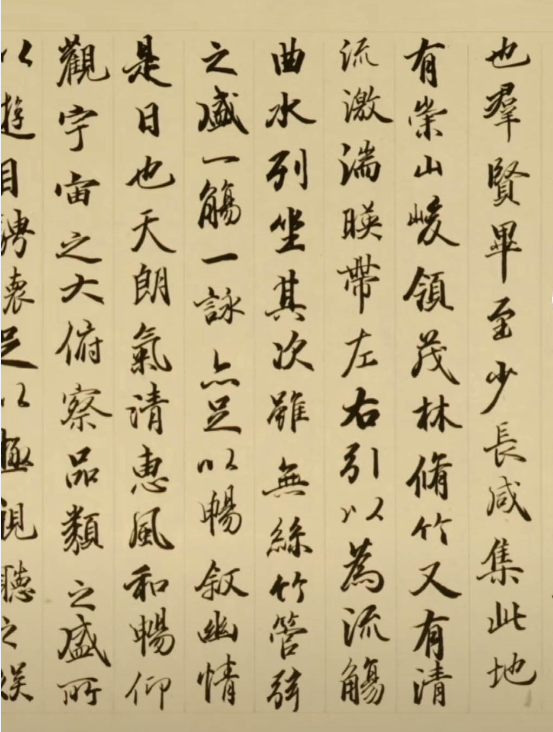 也羣賢畢至少長咸集此地
有崇山峻領茂林脩竹又有清
流激湍暎帶左右引以為流觴
曲水列坐其次雖無絲竹管弦
之盛一觴一詠亦足以暢叙幽情
是日也天朗氣清恵風和暢仰
觀宇宙之大俯察品類之盛所
以遊目騁懷足以極視聽之娛